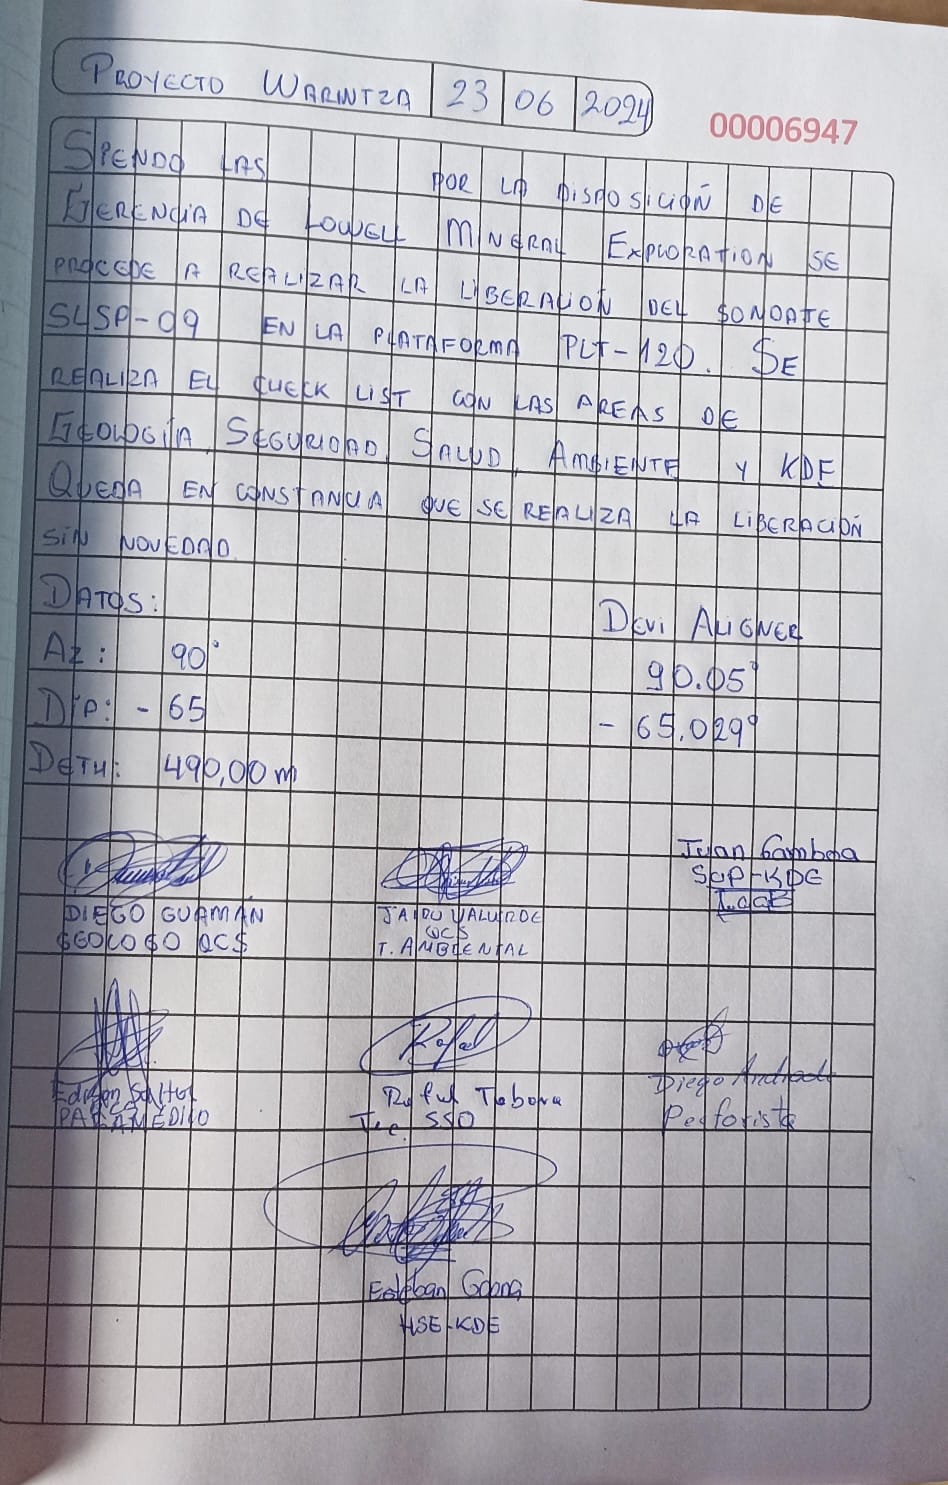 PROYECTO WARINTZA 23 06 2024
00006947
SIENDO LAS POR LA DISPOSICIÓN DE
GERENCIA DE LOWELL MINERAL EXPLORATION SE
PROCEDE A REALIZAR LA LIBERACION DEL SONDAJE
SLSP-09 EN LA PLATAFORMA PLT-120. SE
REALIZA EL CHECK LIST CON LAS AREAS DE
GEOLOGÍA, SEGURIDAD, SALUD, AMBIENTE Y KDE
QUEDA EN CONSTANCIA QUE SE REALIZA LA LIBERACIÓN
SIN NOVEDAD.
DATOS: DEVI ALIGNER
AZ: 90° 90.05°
DIP: -65 -65.029°
DETH: 490,00 m
Juan Gamboa
SUP-KDE
DIEGO GUAMÁN
GEOLOGO QCS
JAIRO VALVERDE
QCS
T. AMBIENTAL
Rafael
Edison
PARAMÉDICO
Tabora
Tec. SSO
Diego Andrade
Perforista
Esteban
HSE-KDE